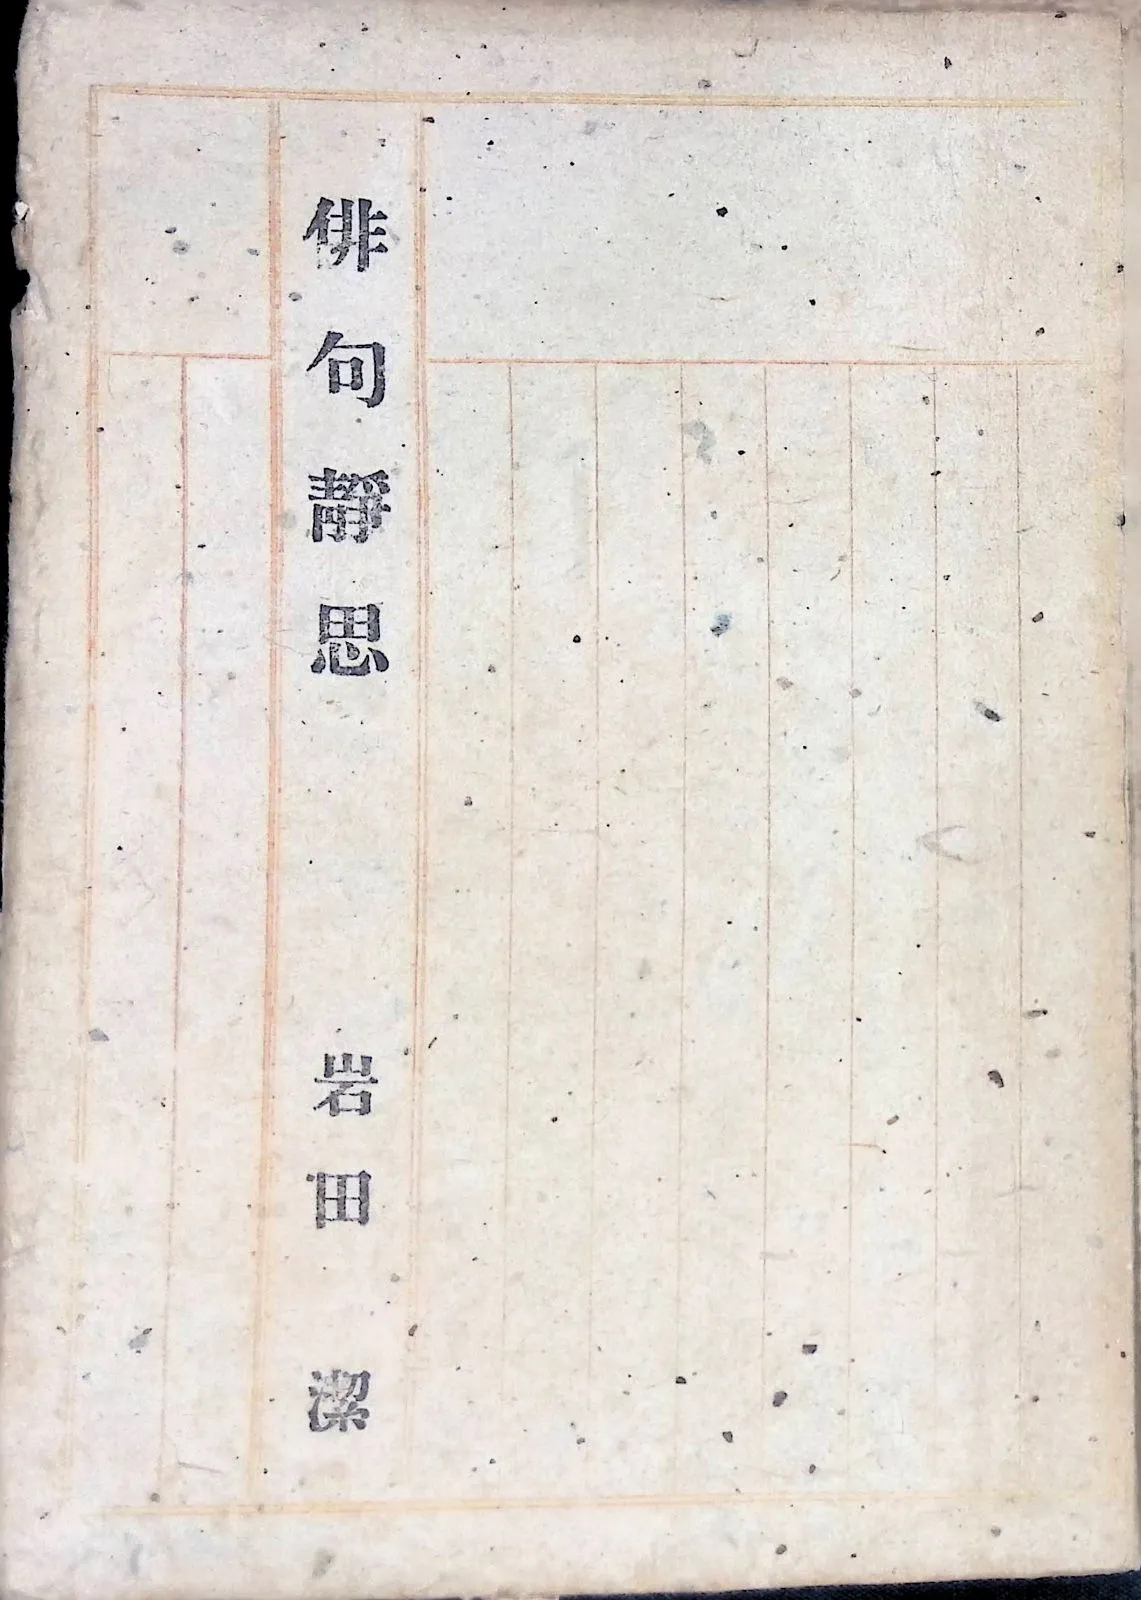 俳句靜思
岩田潔